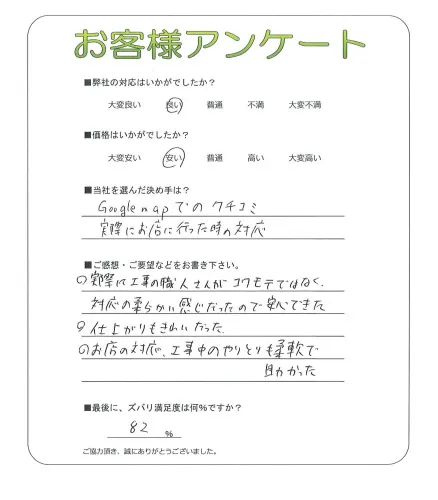 お客様アンケート
■弊社の対応はいかがでしたか?
大変良い 良い 普通 不満 大変不満
■価格はいかがでしたか?
大変安い 安い 普通 高い 大変高い
■当社を選んだ決め手は?
Google mapでのクチコミ
実際にお店に行った時の対応
■ご感想・ご要望などをお書き下さい。
○実際に工事の職人さんがコワモテではなく、
対応の柔らかい感じだったので安心できた
○仕上がりもきれいだった.
○お店の対応、工事中のやりとりも柔軟で
助かった
■最後に、ズバリ満足度は何%ですか?
82 %
ご協力頂き、誠にありがとうございました。